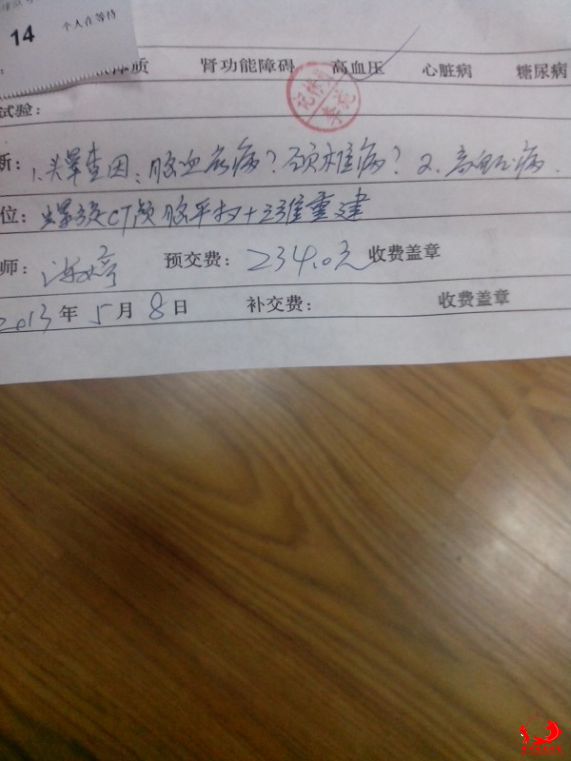 14 个人在等待
质 肾功能障碍 高血压 心脏病 糖尿病
试验：
断：1.头晕查因：脑血管病？颈椎病？2.高血压病.
位：螺旋CT颅脑平扫+三维重建
师： 预交费：234.0元 收费盖章
2013年5月8日 补交费： 收费盖章